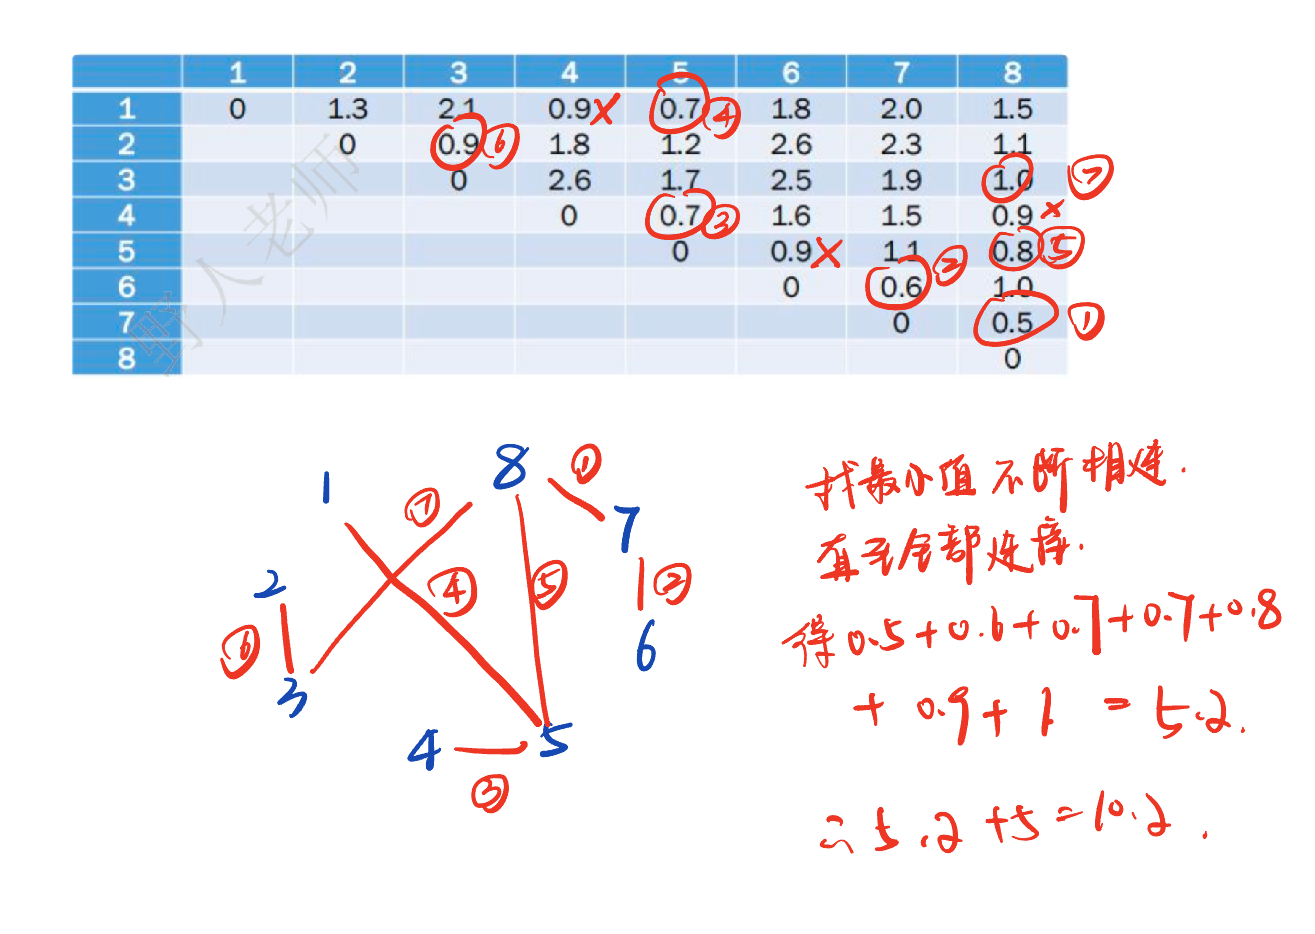 1 2 3 4 5 6 7 8
1 0 1.3 2.1 0.9 × 0.7 ④ 1.8 2.0 1.5
2 0 0.9 ⑥ 1.8 1.2 2.6 2.3 1.1
3 0 2.6 1.7 2.5 1.9 1.0 ⑦
4 0 0.7 ③ 1.6 1.5 0.9 ×
5 0 0.9 × 1.1 0.8 ⑤
6 0 0.6 ② 1.0
7 0 0.5 ①
8 0
野人老师
1 ⑦ 8 ① 7
2 ④ ⑤ ②
⑥ 3 6
4 5
③
找最小值不断相连.
直至全部连接.
得0.5+0.6+0.7+0.7+0.8
+0.9+1=5.2.
∴5.2+5=10.2.